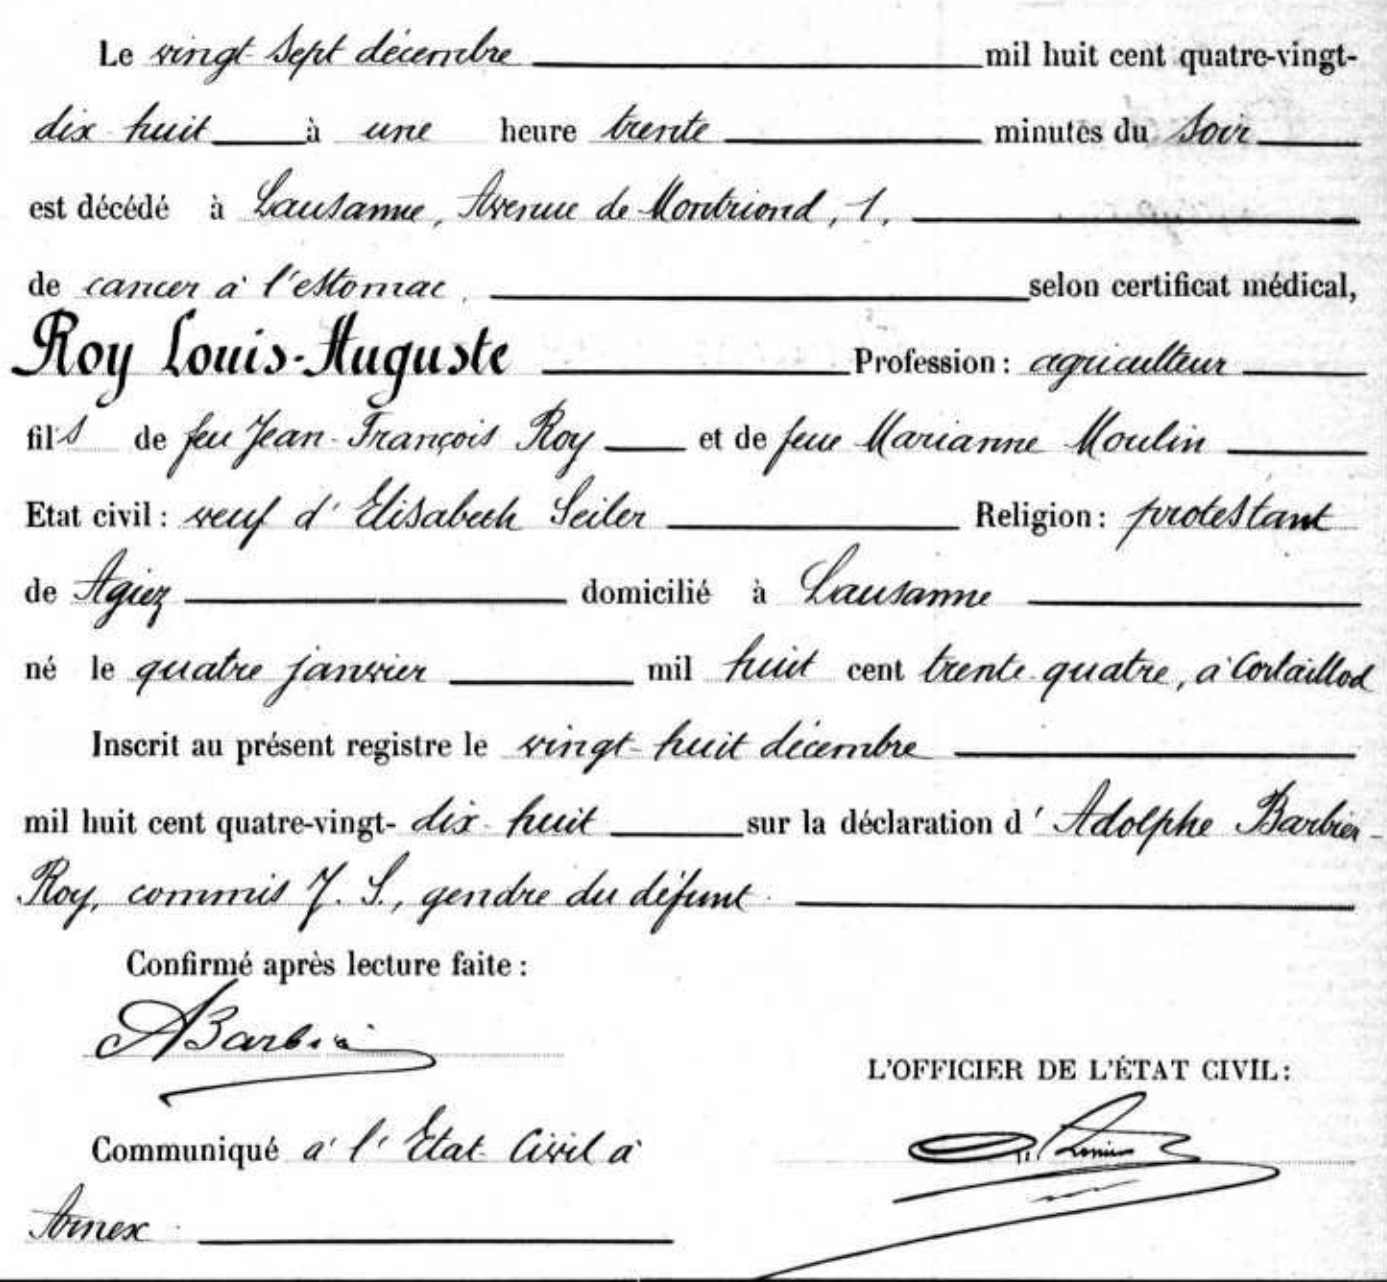 Le vingt-sept décembre mil huit cent quatre-vingt-
dix-huit à une heure trente minutes du soir
est décédé à Lausanne, Avenue de Montriond, 1,
de cancer à l'estomac, selon certificat médical,
Roy Louis-Auguste Profession : agriculteur
fils de feu Jean-François Roy et de feue Marianne Moulin
Etat civil : veuf d'Elisabeth Seiler Religion : protestant
de Agiez domicilié à Lausanne
né le quatre janvier mil huit cent trente-quatre, à Cortaillod
Inscrit au présent registre le vingt-huit décembre
mil huit cent quatre-vingt-dix-huit sur la déclaration d'Adolphe Barbier-
Roy, commis J. S., gendre du défunt.
Confirmé après lecture faite :
ABarbier
L'OFFICIER DE L'ÉTAT CIVIL :
Communiqué à l'Etat Civil à
Arnex